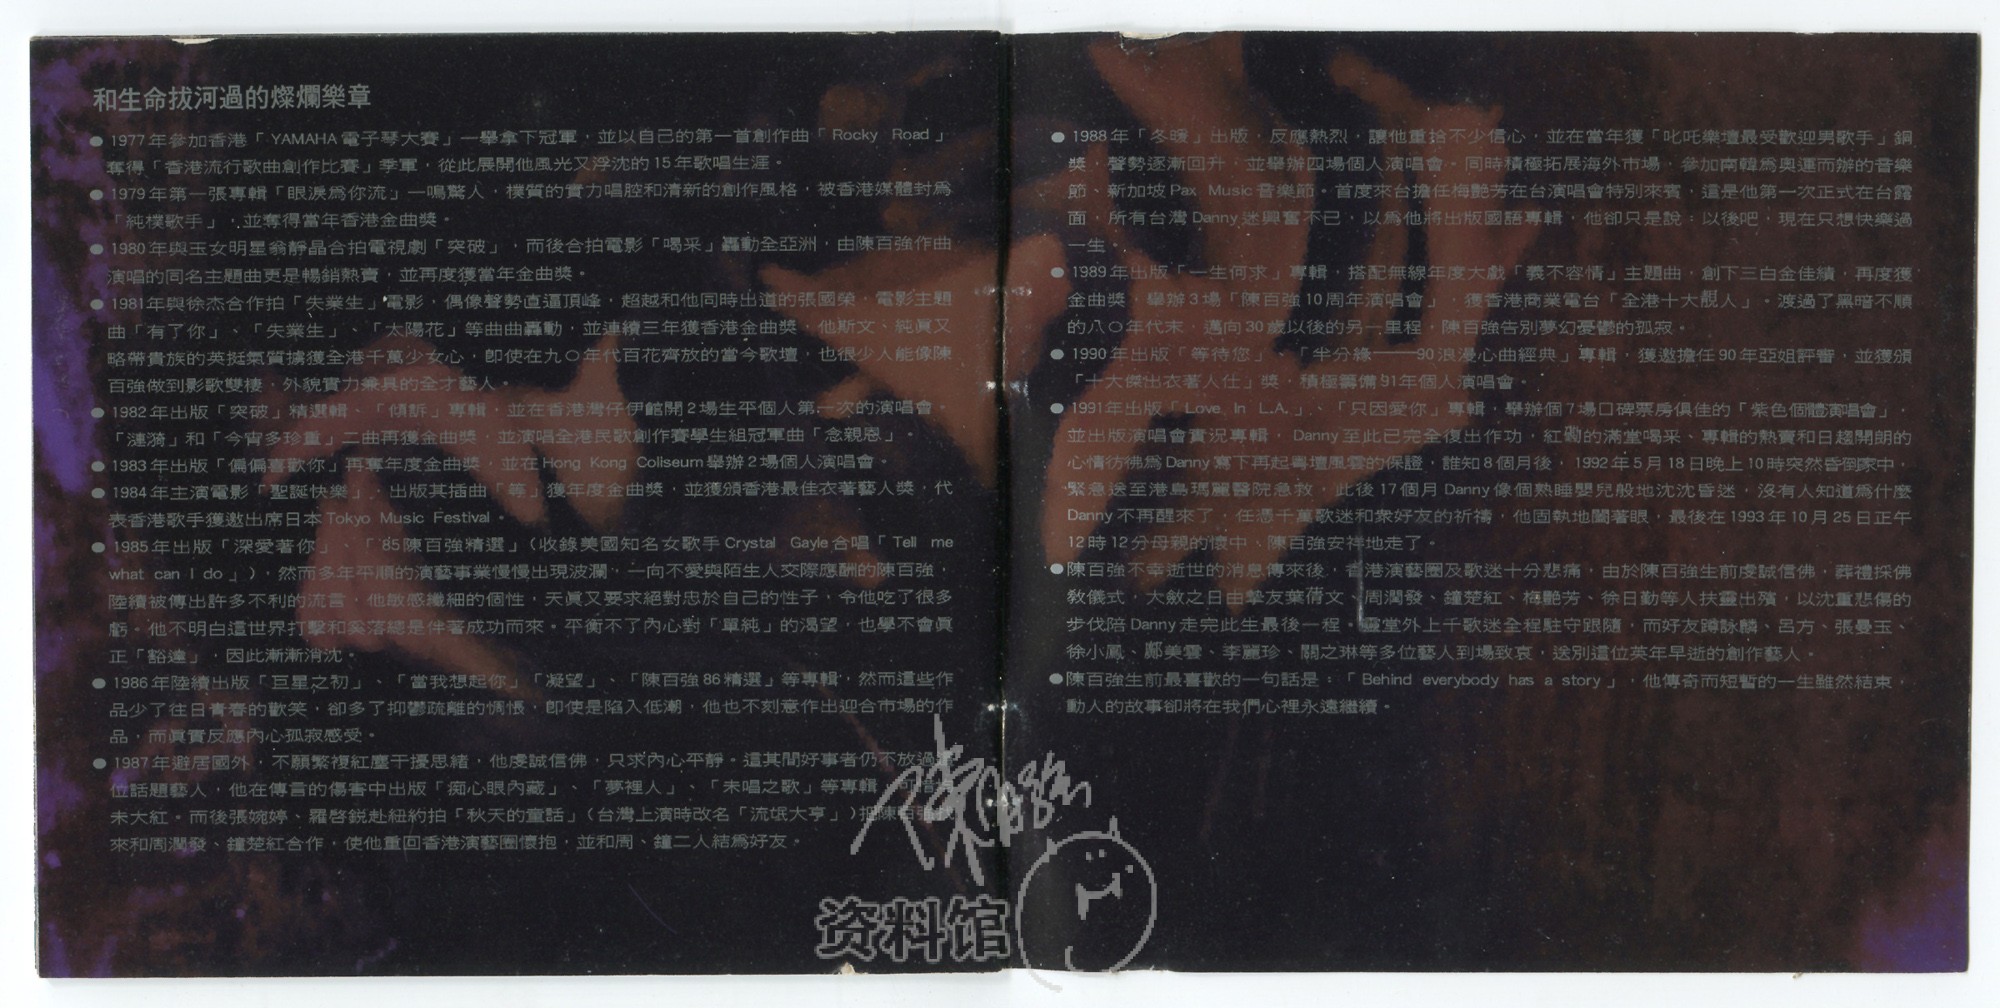 和生命拔河過的燦爛樂章
● 1977年參加香港「YAMAHA電子琴大賽」一舉拿下冠軍，並以自己的第一首創作曲「Rocky Road」
奪得「香港流行歌曲創作比賽」季軍，從此展開他風光又浮沈的15年歌唱生涯。
● 1979年第一張專輯「眼淚為你流」一鳴驚人，樸質的實力唱腔和清新的創作風格，被香港媒體封為
「純樸歌手」,並奪得當年香港金曲獎。
● 1980年與玉女明星翁靜晶合拍電視劇「突破」，而後合拍電影「喝采」轟動全亞洲，由陳百強作曲
演唱的同名主題曲更是暢銷熱賣，並再度獲當年金曲獎。
● 1981年與徐杰合作拍「失業生」電影，偶像聲勢直逼頂峰，超越和他同時出道的張國榮，電影主題
曲「有了你」、「失業生」、「太陽花」等曲曲轟動，並連續三年獲香港金曲獎，他斯文、純眞又
略帶貴族的英挺氣質擄獲全港千萬少女心，即使在九〇年代百花齊放的當今歌壇，也很少人能像陳
百強做到影歌雙棲，外貌實力兼具的全才藝人。
● 1982年出版「突破」精選輯、「傾訴」專輯，並在香港灣仔伊館開2場生平個人第一次的演唱會。
「漣漪」和「今宵多珍重」二曲再獲金曲獎，並演唱全港民歌創作賽學生組冠軍曲「念親恩」。
● 1983年出版「偏偏喜歡你」再奪年度金曲獎，並在Hong Kong Coliseum舉辦2場個人演唱會。
● 1984年主演電影「聖誕快樂」，出版其插曲「等」獲年度金曲獎，並獲頒香港最佳衣著藝人獎，代
表香港歌手獲邀出席日本Tokyo Music Festival。
● 1985年出版「深愛著你」、「'85陳百強精選」(收錄美國知名女歌手Crystal Gayle合唱「Tell me
what can I do」)，然而多年平順的演藝事業慢慢出現波瀾，一向不愛與陌生人交際應酬的陳百強，
陸續被傳出許多不利的流言，他敏感纖細的個性，天眞又要求絕對忠於自己的性子，令他吃了很多
虧。他不明白這世界打擊和奚落總是伴著成功而來。平衡不了內心對「單純」的渴望，也學不會眞
正「豁達」，因此漸漸消沈。
● 1986年陸續出版「巨星之初」、「當我想起你」「凝望」、「陳百強86精選」等專輯，然而這些作
品少了往日青春的歡笑，卻多了抑鬱疏離的惆悵，即使是陷入低潮，他也不刻意作出迎合市場的作
品，而眞實反應內心孤寂感受。
● 1987年避居國外，不願繁複紅塵干擾思緒，他虔誠信佛，只求內心平靜。這其間好事者仍不放過
位話題藝人，他在傳言的傷害中出版「痴心眼內藏」、「夢裡人」、「未唱之歌」等專輯，可惜
未大紅。而後張婉婷、羅啓銳赴紐約拍「秋天的童話」(台灣上演時改名「流氓大亨」)把陳百強
來和周潤發、鐘楚紅合作，使他重回香港演藝圈懷抱，並和周、鐘二人結為好友。
● 1988年「冬暖」出版，反應熱烈，讓他重拾不少信心，並在當年獲「叱吒樂壇最受歡迎男歌手」銅
獎，聲勢逐漸回升，並舉辦四場個人演唱會。同時積極拓展海外市場，參加南韓為奧運而辦的音樂
節、新加坡Pax Music音樂節。首度來台擔任梅艷芳在台演唱會特別來賓，這是他第一次正式在台露
面，所有台灣Danny迷興奮不已，以為他將出版國語專輯，他卻只是說：以後吧，現在只想快樂過
一生。
● 1989年出版「一生何求」專輯，搭配無線年度大戲「義不容情」主題曲，創下三白金佳績，再度獲
金曲獎，舉辦3場「陳百強10周年演唱會」，獲香港商業電台「全港十大靚人」。渡過了黑暗不順
的八〇年代末，邁向30歲以後的另一里程，陳百強告別夢幻憂鬱的孤寂。
● 1990年出版「等待您」、「半分緣——90浪漫心曲經典」專輯，獲邀擔任90年亞姐評審，並獲頒
「十大傑出衣著人仕」獎，積極籌備91年個人演唱會。
● 1991年出版「Love In L.A.」、「只因愛你」專輯，舉辦個7場口碑票房俱佳的「紫色個體演唱會」，
並出版演唱會實況專輯，Danny至此已完全復出作功，紅磡的滿堂喝采、專輯的熱賣和日趨開朗的
心情彷彿為Danny寫下再起粵壇風雲的保證，誰知8個月後，1992年5月18日晚上10時突然昏倒家中，
緊急送至港島瑪麗醫院急救，此後17個月Danny像個熟睡嬰兒般地沈沈昏迷，沒有人知道為什麼
Danny不再醒來了，任憑千萬歌迷和衆好友的祈禱，他固執地闔著眼，最後在1993年10月25日正午
12時12分母親的懷中、陳百強安祥地走了。
● 陳百強不幸逝世的消息傳來後，香港演藝圈及歌迷十分悲痛，由於陳百強生前虔誠信佛，葬禮採佛
教儀式，大斂之日由摯友葉倩文、周潤發、鐘楚紅、梅艷芳、徐日勤等人扶靈出殯，以沈重悲傷的
步伐陪Danny走完此生最後一程。靈堂外上千歌迷全程駐守跟隨，而好友蹲詠麟、呂方、張曼玉、
徐小鳳、鄺美雲、李麗珍、關之琳等多位藝人到場致哀，送別這位英年早逝的創作藝人。
● 陳百強生前最喜歡的一句話是：「Behind everybody has a story」，他傳奇而短暫的一生雖然結束，
動人的故事卻將在我們心裡永遠繼續。
陳百強
资料馆